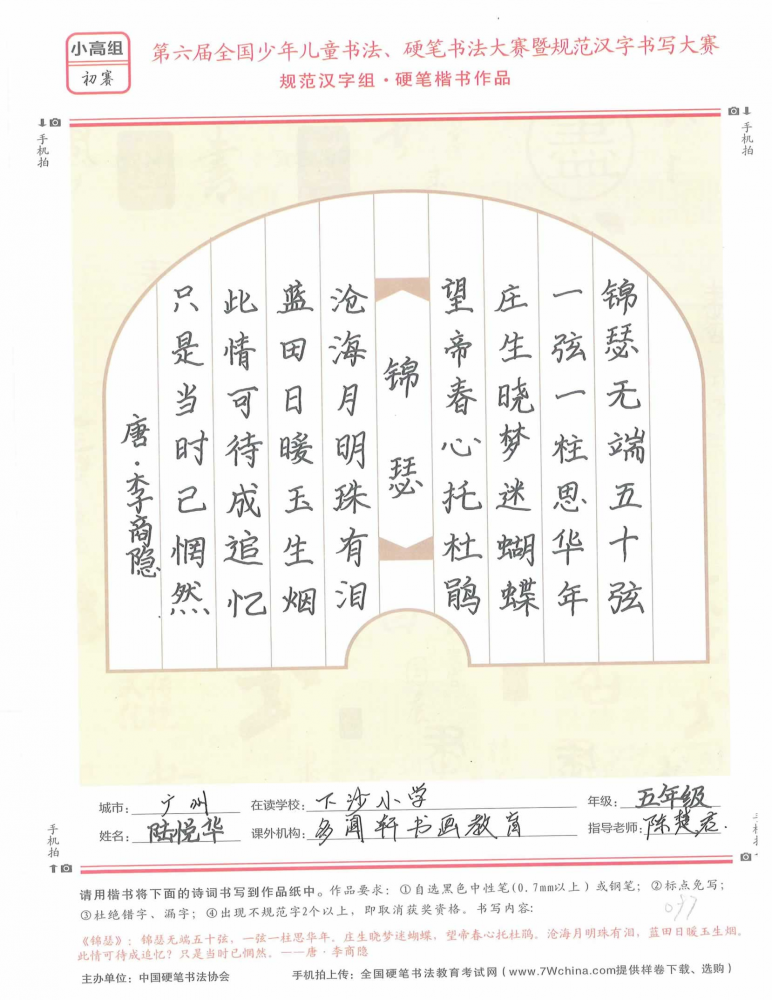 小高组
初赛
第六届全国少年儿童书法、硬笔书法大赛暨规范汉字书写大赛
规范汉字组·硬笔楷书作品
手机拍
手机拍
锦瑟无端五十弦
一弦一柱思华年
庄生晓梦迷蝴蝶
望帝春心托杜鹃
锦瑟
沧海月明珠有泪
蓝田日暖玉生烟
此情可待成追忆
只是当时已惘然
唐·李商隐
城市：广州 在读学校：下沙小学 年级：五年级
姓名：陆悦华 课外机构：多闻轩书画教育 指导老师：陈楚君.
手机拍
手机拍
请用楷书将下面的诗词书写到作品纸中。作品要求：①自选黑色中性笔(0.7mm以上)或钢笔；②标点免写；
③杜绝错字、漏字；④出现不规范字2个以上，即取消获奖资格。书写内容：
《锦瑟》：锦瑟无端五十弦，一弦一柱思华年。庄生晓梦迷蝴蝶，望帝春心托杜鹃。沧海月明珠有泪，蓝田日暖玉生烟。
此情可待成追忆？只是当时已惘然。——唐·李商隐
主办单位：中国硬笔书法协会 手机拍上传：全国硬笔书法教育考试网（www.7Wchina.com提供样卷下载、选购）